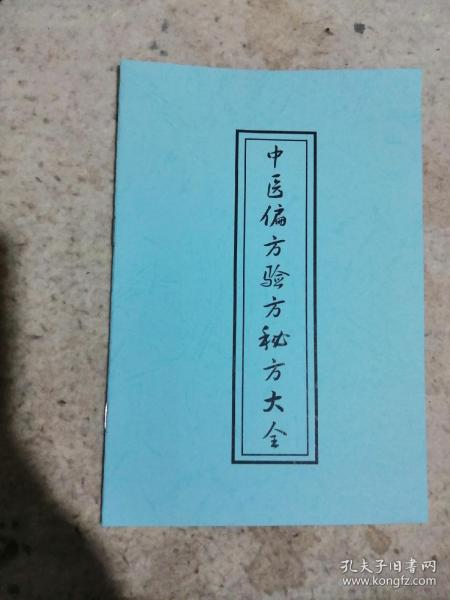 中医偏方验方秘方大全
孔夫子旧书网
www.kongfz.com